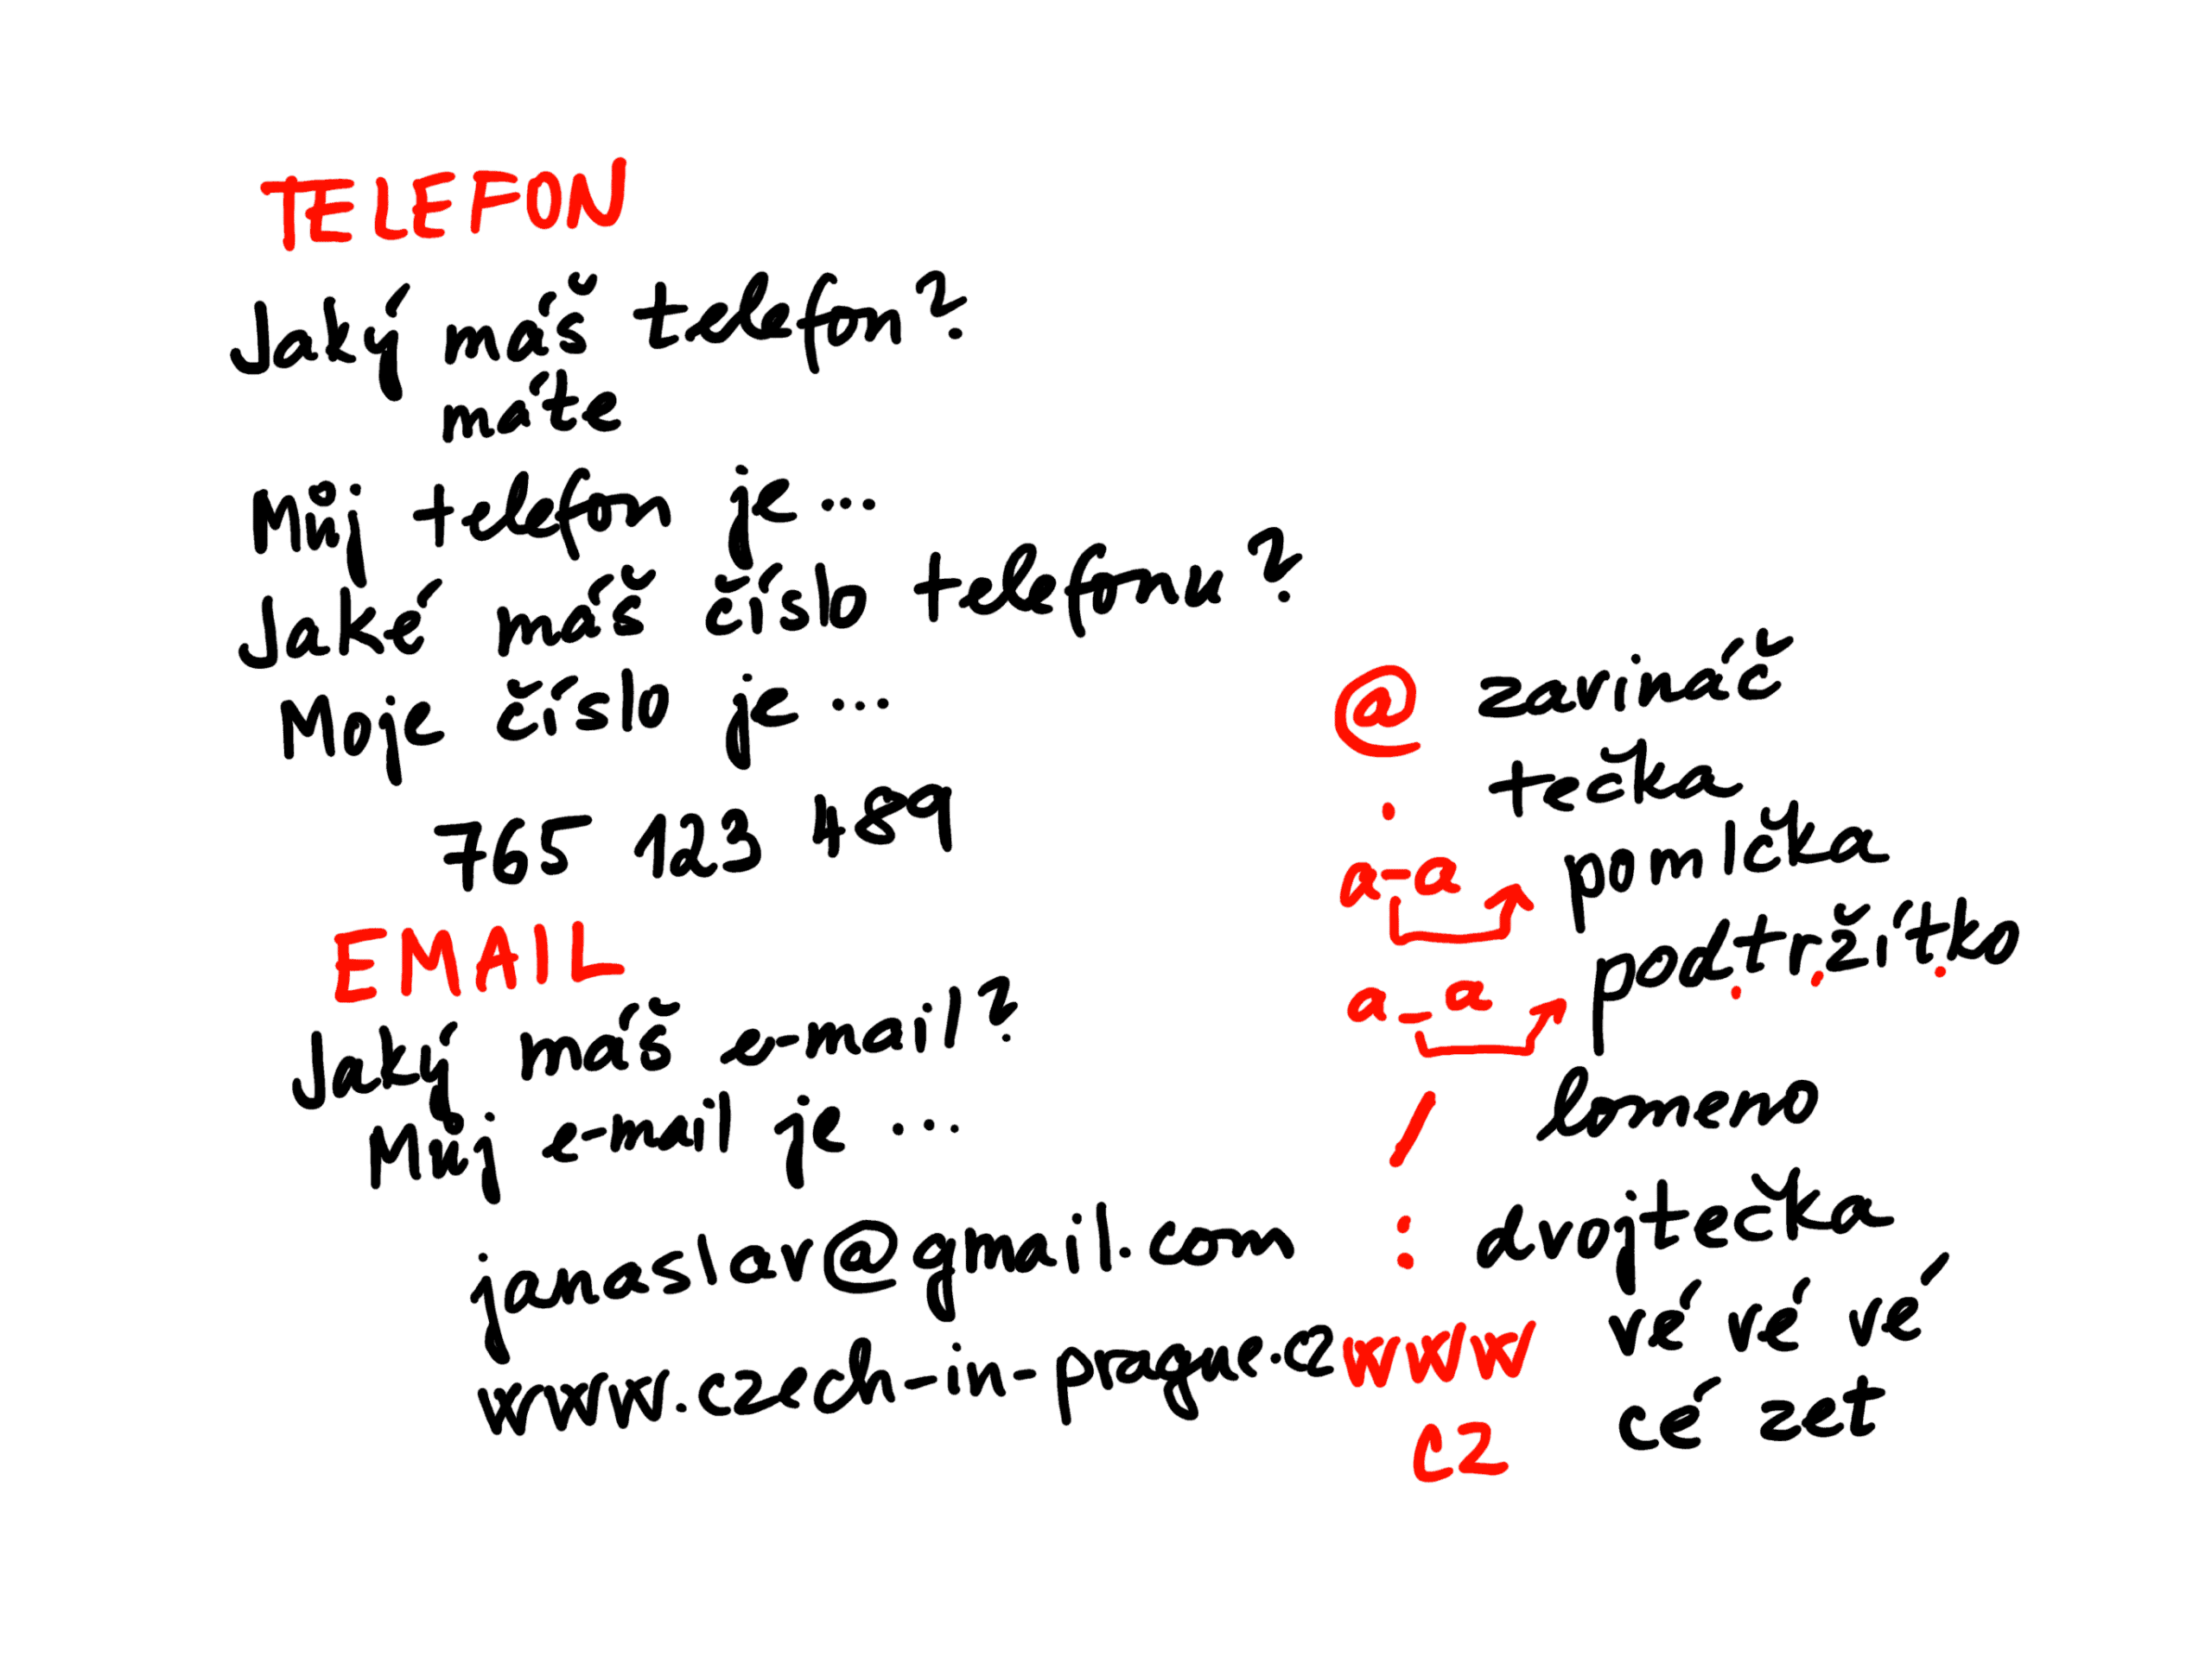 TELEFON
Jaký máš telefon?
máte
Můj telefon je...
Jaké máš číslo telefonu?
Moje číslo je...
765 123 489
EMAIL
Jaký máš e-mail?
Můj e-mail je ...
janaslav@gmail.com
www.czech-in-prague.cz
@ zavináč
. tečka
a-a pomlčka
a_a podtržítko
/ lomeno
: dvojtečka
www vé vé vé
cz cé zet